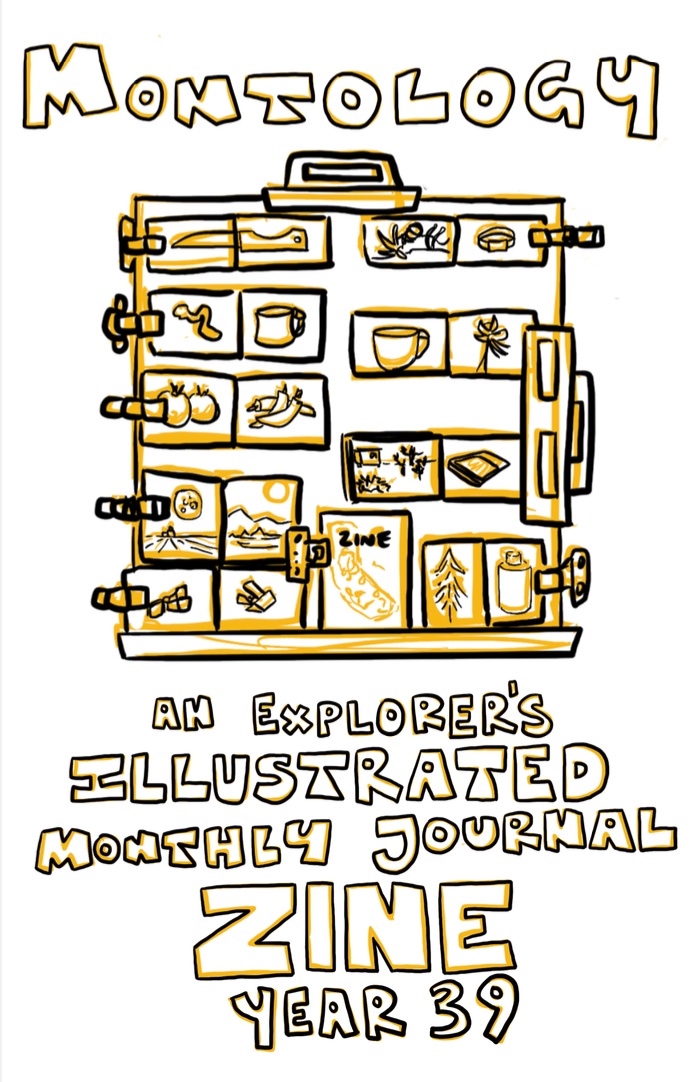 MONTOLOGY
ZINE
AN EXPLORER'S
ILLUSTRATED
MONTHLY JOURNAL
ZINE
YEAR 39